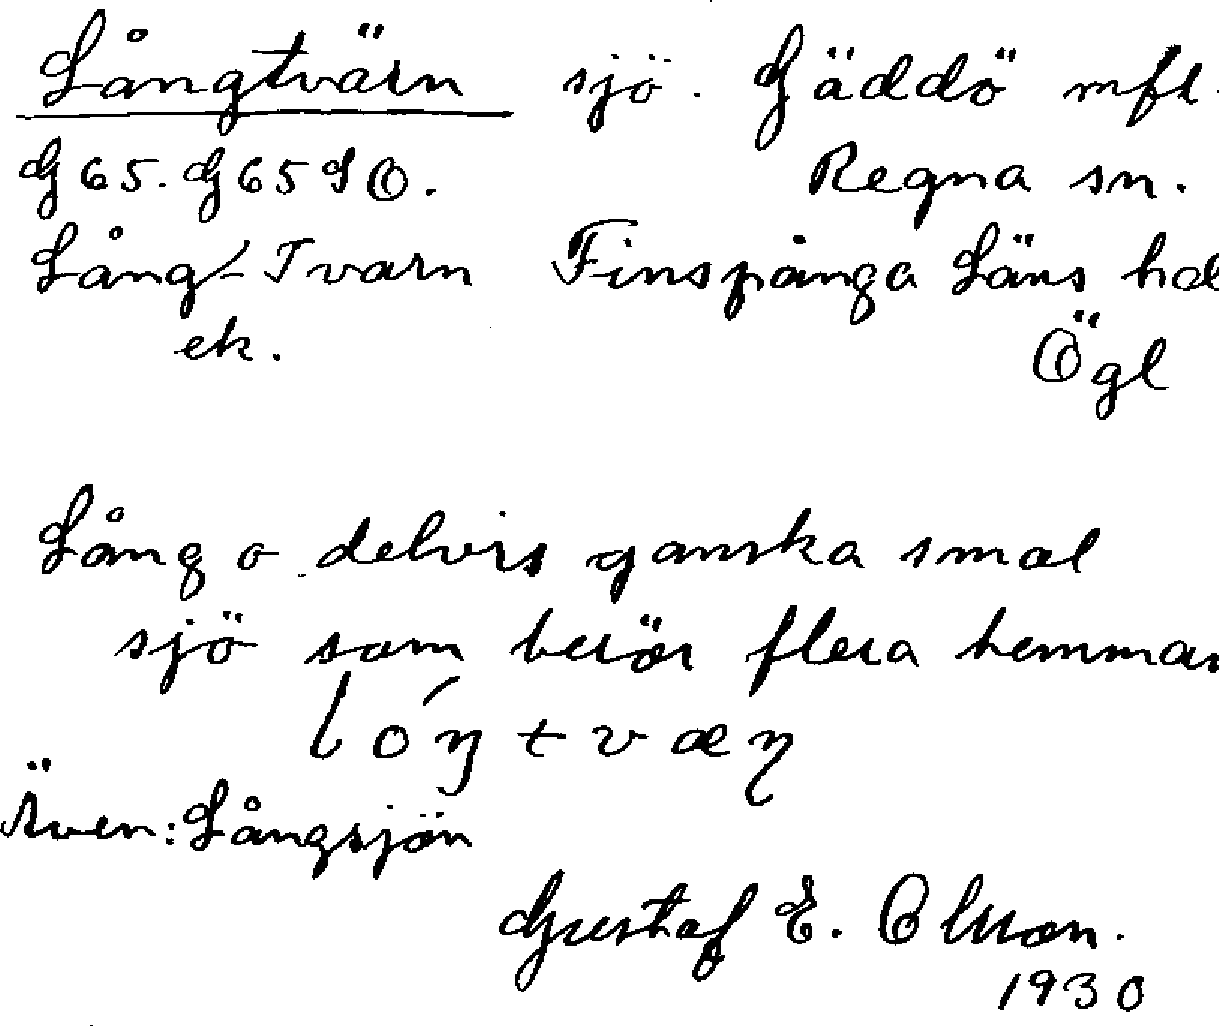 Långtvärn sjö. Gäddö mfl.
G65. G65SO. Regna sn.
Lång-Tvarn Finspånga Läns hd
ek. Ögl
Lång o delvis ganska smal
sjö som berör flera hemman
lóŋtvæɳ
Även: Långsjön
Gustaf E. Olsson.
1930